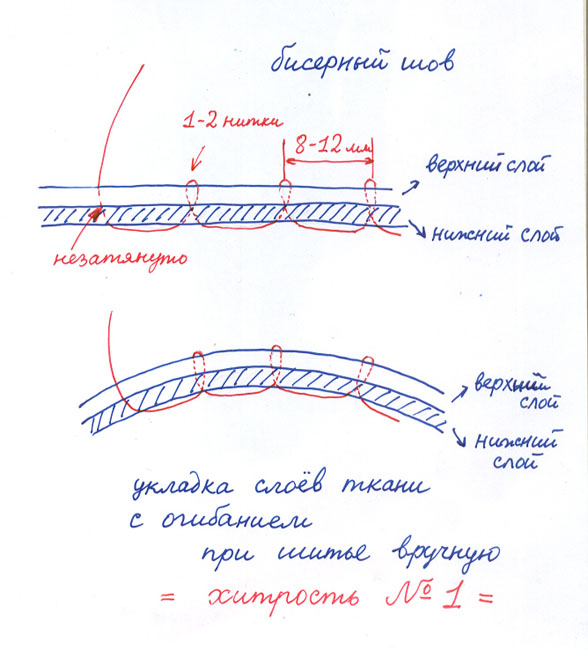 бисерный шов
1-2 нитки
8-12 мм
верхний слой
нижний слой
незатянуто
верхний
слой
нижний
слой
укладка слоёв ткани
с огибанием
при шитье вручную
= хитрость № 1 =